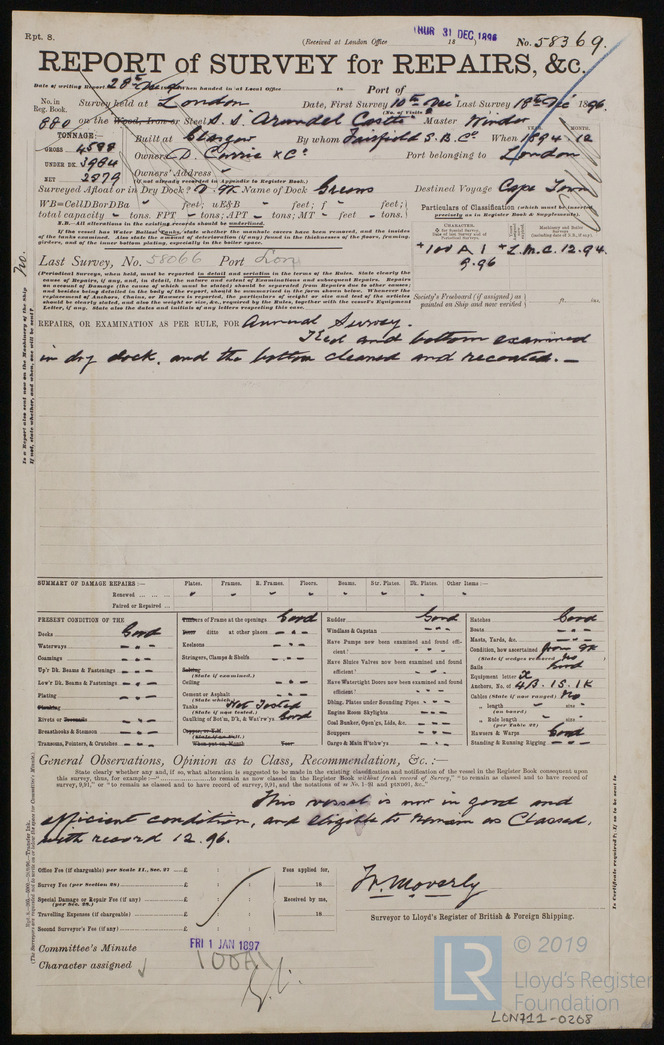 Rpt. 8.
(Received at London Office THUR 31 DEC. 1896 18 )
No. 58369.
REPORT of SURVEY for REPAIRS, &c.
Date of writing Report 28th Dec When handed in at Local Office 18 Port of
No. in Reg. Book. Survey held at London Date, First Survey 10th Dec Last Survey 18th Dec 1896.
(No. of Visits )
880 on the Wood, Iron or Steel S.S. "Arundel Castle" Master Winder
TONNAGE:—
GROSS 4588
UNDER DK. 3984
NET 2979
Built at Glasgow By whom Fairfield S.B.Co. When 1894.12
YEAR. MONTH.
Owners D. Currie & Co Port belonging to London
Owners' Address
(if not already recorded in Appendix to Register Book.)
Surveyed Afloat or in Dry Dock? D. Dk Name of Dock Greens Destined Voyage Cape Town
WB=CellDBorDBa " feet; uE&B " feet; f " feet;
total capacity - tons. FPT - tons; APT - tons; MT - feet - tons.
If the vessel has Water Ballast Tanks, state whether the manhole covers have been removed, and the insides
of the tanks examined. Also state the amount of deterioration (if any) found in the thicknesses of the floors, framing,
girders, and of the inner bottom plating, especially in the boiler space.
N.B.—All alterations in the existing records should be underlined.
Particulars of Classification (which must be inserted
precisely as in Register Book & Supplements).
+100 A 1
9.96
+L.M.C. 12.94
Last Survey, No. 58066 Port Lon
(Periodical Survey, when held, must be reported in detail and seriatim in the terms of the Rules. State clearly the
cause of Repairs, if any, and, in detail, the nature and extent of Examinations and subsequent Repairs. Repairs
on account of Damage (the cause of which must be stated) should be separated from Repairs due to other causes;
and besides being detailed in the body of the report, should be summarised in the form shown below. Whenever the
replacement of Anchors, Chains, or Hawsers is reported, the particulars of weight or size and test of the articles
should be clearly stated, and also the weight or size, &c., required by the Rules, together with the vessel's Equipment
Letter, if any. State also the dates and initials of any letters respecting this case.
Society's Freeboard (if assigned) as
painted on Ship and now verified ft. ins.
Is a Report also sent now on the Machinery of the Ship No.
If not, state whether, and when, one will be sent?
REPAIRS, OR EXAMINATION AS PER RULE, FOR Annual Survey.
Keel and bottom examined
in dry dock, and the bottom cleaned and recoated.—
SUMMARY OF DAMAGE REPAIRS:— Plates. Frames. R. Frames. Floors. Beams. Str. Plates. Dk. Plates. Other Items:—
Renewed " " " " " " " "
Faired or Repaired
PRESENT CONDITION OF THE
Decks Good
Waterways - " -
Coamings - " -
Up'r Dk. Beams & Fastenings - " -
Low'r Dk. Beams & Fastenings - " -
Plating - " -
Planking
Rivets or Treenails - " -
Breasthooks & Stemson - " -
Transoms, Pointers, & Crutches - " -
Timbers of Frame at the openings Good
Door ditto at other places - " -
Keelsons - " -
Stringers, Clamps & Shelfs - " -
Salting
(State if examined.)
Ceiling - " -
Cement or Asphalt - " -
(State which)
Tanks Not Tested
(State if now tested.)
Caulking of Bot'm, D'k, & Wat'rw'ys Good
Copper, or Y.M.
(State if on Felt.)
When put on, Month Year
Rudder Good
Windlass & Capstan - " -
Have Pumps now been examined and found efficient? - " -
Have Sluice Valves now been examined and found efficient? - " -
Have Watertight Doors now been examined and found efficient? - " -
Dbling. Plates under Sounding Pipes - " -
Engine Room Skylights - " -
Coal Bunker, Open'gs, Lids, &c. - " -
Scuppers - " -
Cargo & Main H'tchw'ys - " -
Hatches Good
Boats - " -
Masts, Yards, &c. - " -
Condition, how ascertained from Dk
(State if wedges removed) No
Sails Good
Equipment letter
Anchors, No. of 4B. 1S. 1K
Cables (State if now ranged) No
" length " size "
(on board)
" Rule length " size "
(per Table 22)
Hawsers & Warps Good
Standing & Running Rigging - " -
General Observations, Opinion as to Class, Recommendation, &c.:—
State clearly whether any and, if so, what alteration is suggested to be made in the existing classification and notification of the vessel in the Register Book consequent upon
this survey, thus, for example:—" to remain as now classed in the Register Book without fresh record of Survey," "to remain as classed and to have record of
survey, 9,91," or "to remain as classed and to have record of survey, 9,91, and the notations of
This vessel is now in good and
efficient condition, and eligible to remain as Classed,
with record 12.96.
Office Fee (if chargeable) per Scale 11., Sec. 27 £ : :
Survey Fee (per Section 28) £ : :
Special Damage or Repair Fee (if any) £ : :
(per Sec. 28.)
Travelling Expenses (if chargeable) £ : :
Second Surveyor's Fee (if any) £ : :
Fees applied for, 18
Received by me, 18
W. Moverly
Surveyor to Lloyd's Register of British & Foreign Shipping.
Committee's Minute FRI 1 JAN 1897
Character assigned 100A1
LR © 2019
Lloyd's Register
Foundation
LON711-0208